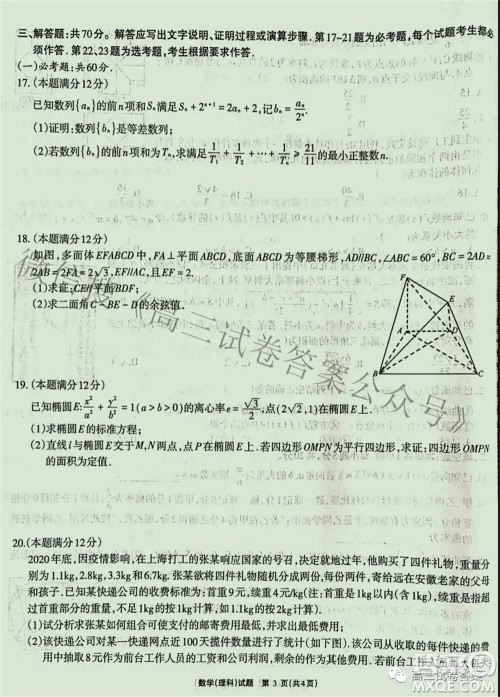 三、解答题:共70分。解答应写出文字说明、证明过程或演算步骤.第17~21题为必考题,每个试题考生都必
须作答.第22、23题为选考题,考生根据要求作答.
(一)必考题:共60分.
17.(本题满分12分)
已知数列{aₙ}的前n项和Sₙ满足Sₙ+2ⁿ⁺¹=2aₙ+2,记bₙ=aₙ/2ⁿ.
(1)证明:数列{bₙ}是等差数列;
(2)若数列{bₙ}的前n项和为Tₙ,求满足1/T₁+1/T₂+…+1/Tₙ≥21/11的最小正整数n.
18.(本题满分12分)
如图,多面体EFABCD中,FA⊥平面ABCD,底面ABCD为等腰梯形,AD//BC,∠ABC=60°,BC=2AD=
2AB=2FA=2√3,EF//AC,且EF=2.
(1)求证:CE//平面BDF;
(2)求二面角C-BE-D的余弦值.
F
E
A
D
B
C
19.(本题满分12分)
已知椭圆E:x²/a²+y²/b²=1(a>b>0)的离心率e=√3/2,点(2√2,1)在椭圆E上.
(1)求椭圆E的标准方程;
(2)直线l与椭圆E交于M,N两点,点P在椭圆E上.若四边形OMPN为平行四边形,求证:四边形OMPN
的面积为定值.
20.(本题满分12分)
2020年底,因疫情影响,在上海打工的张某响应国家的号召,决定就地过年,他购买了四件礼物,重量分
别为1.1kg,2.8kg,3.3kg和6.7kg.张某欲将四件礼物随机分成两份,每份两件,寄给远在安徽老家的父母
和孩子.已知某快递公司的收费标准为:首重9元,续重4元/kg(注:首重是1kg以内(含1kg),续重是指超
过首重部分的重量,不足1kg的按1kg计算,如1.1kg的按2kg计算).
(1)试分析求张某如何组合可使支付的邮寄费用最低,并求出最低费用;
(2)该快递公司对某一快递网点近100天揽件数量进行了统计(如下图).该公司从收取的每件快递的费
用中抽取8元作为前台工作人员的工资和公司利润,剩余的作为其他费用.若前台工作人员
数学(理科)试题 第3页(共4页)
《高三试卷答案公众号》
高三试卷答案
MXQE.COM